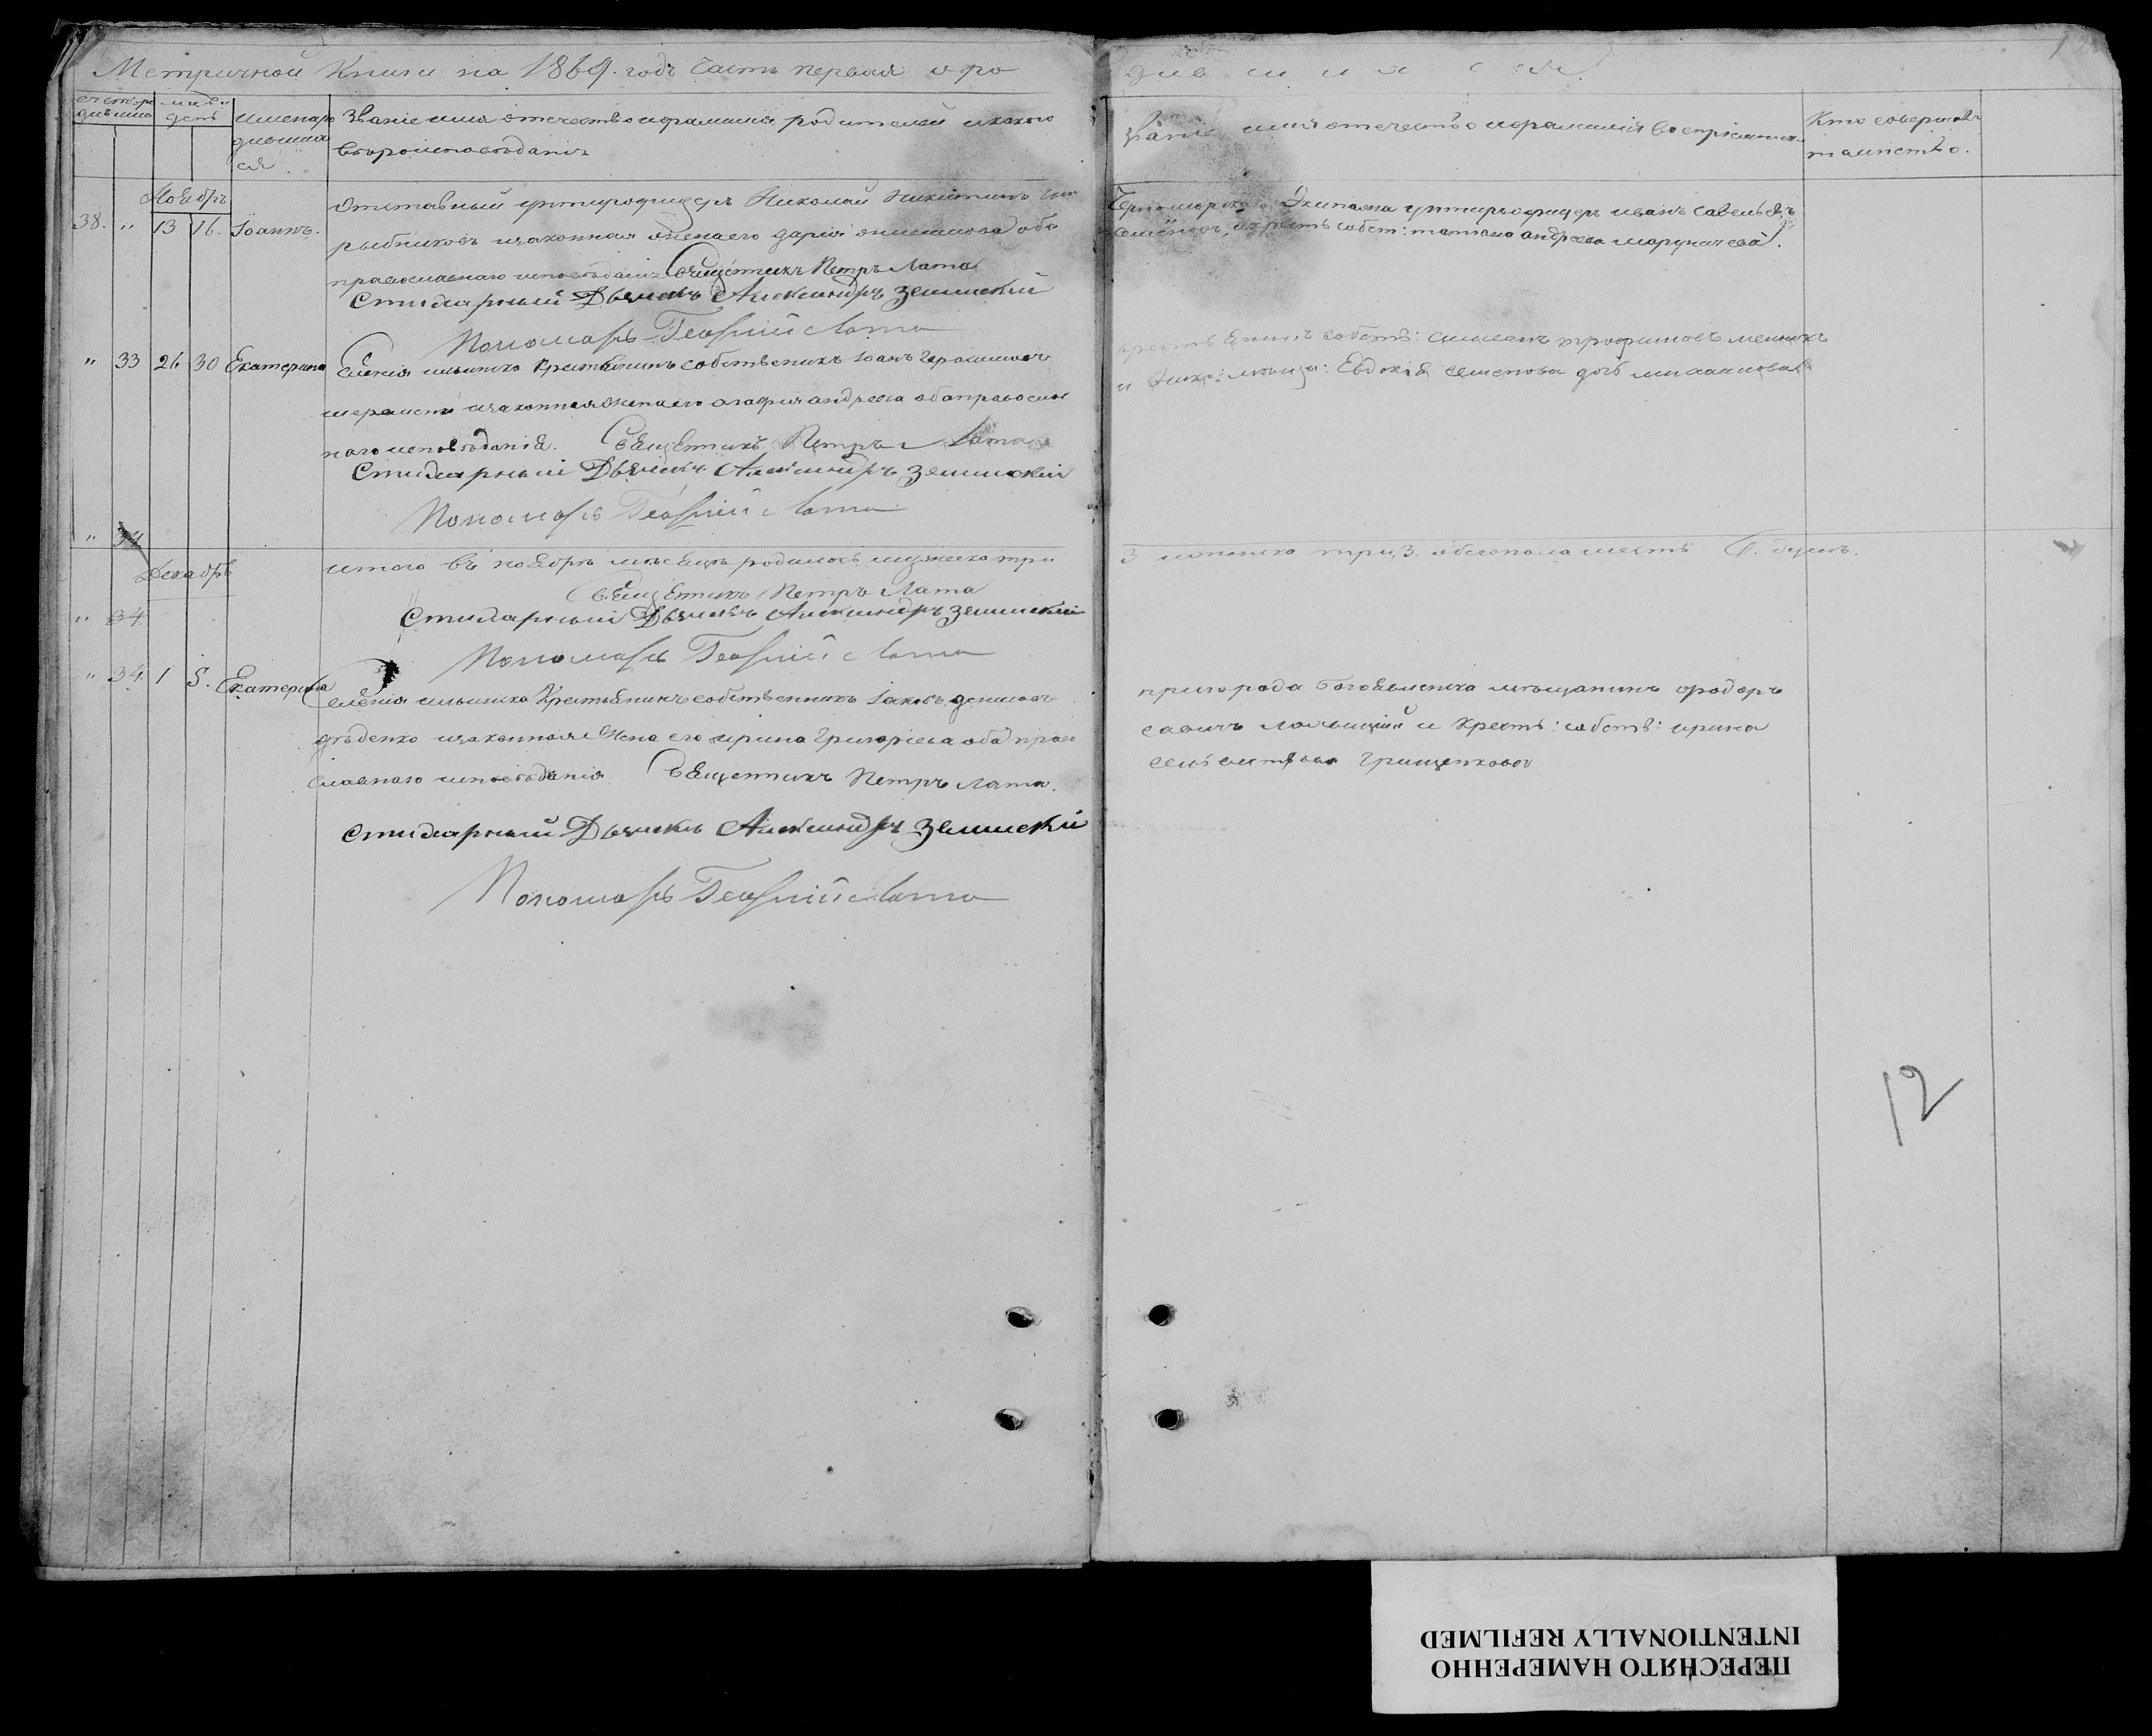 Метричной Книги на 1869. годъ Часть первая о ро
счетъ ро
дившихъ
мѣс. и
день
имена ро
дивших
ся.
Званіе имя отечество и фамилія родителей и какого
вѣроисповѣданія
Ноябрь
38. " 13 16. Іоаннъ.
Отставный унтирофицеръ Николай Никитинъ
рыбниковъ и законная жена его дарія онисимова оба
православнаго исповѣданія Священникъ Петръ Лата
Стихарный Дьячекъ Александръ Зелинскій
Пономарь Георгій Лата
" 33 26 30 Екатерина
Селенія ильинка Крестьянинъ собственикъ Іоанъ Герасимовъ
и законная жена его агафія андреева оба правосла
наго исповѣданія. Священникъ Петръ Лата
Стихарный Дьячекъ Александръ Зелинскій
Пономарь Георгій Лата
" 34
итого въ ноябрѣ мѣсяцѣ родилось мужеска три
Декабрь
Священникъ Петръ Лата
Стихарный Дьячекъ Александръ Зелинскій
" 34
Пономарь Георгій Лата
" 34. 1 5. Екатерина
Селенія ильинка Крестьянинъ собственникъ Іаковъ денисовъ
дѣденко и законная жена его ирина Григоріева оба право
славнаго исповѣданія Священникъ Петръ Лата.
Стихарный Дьячекъ Александръ Зелинскій
Пономарь Георгій Лата
дившихся
званіе имя отечество и фамилія воспріемник
Кто совершалъ
таинство.
Черноморскаго Экипажа унтирьофицеръ иванъ савельевъ
и крестъ собст: татіана андреева
крестьянинъ собств: трофимовъ
Евдокія семенова дочь
3 женска три 3. обоего пола шесть 6. душъ.
пригорода Богоявленска мѣщанинъ фодоръ
савичъ и Кресть: собств: ирина
Грищенкова
12
ПЕРЕСНЯТО НАМЕРЕННО
INTENTIONALLY REFILMED